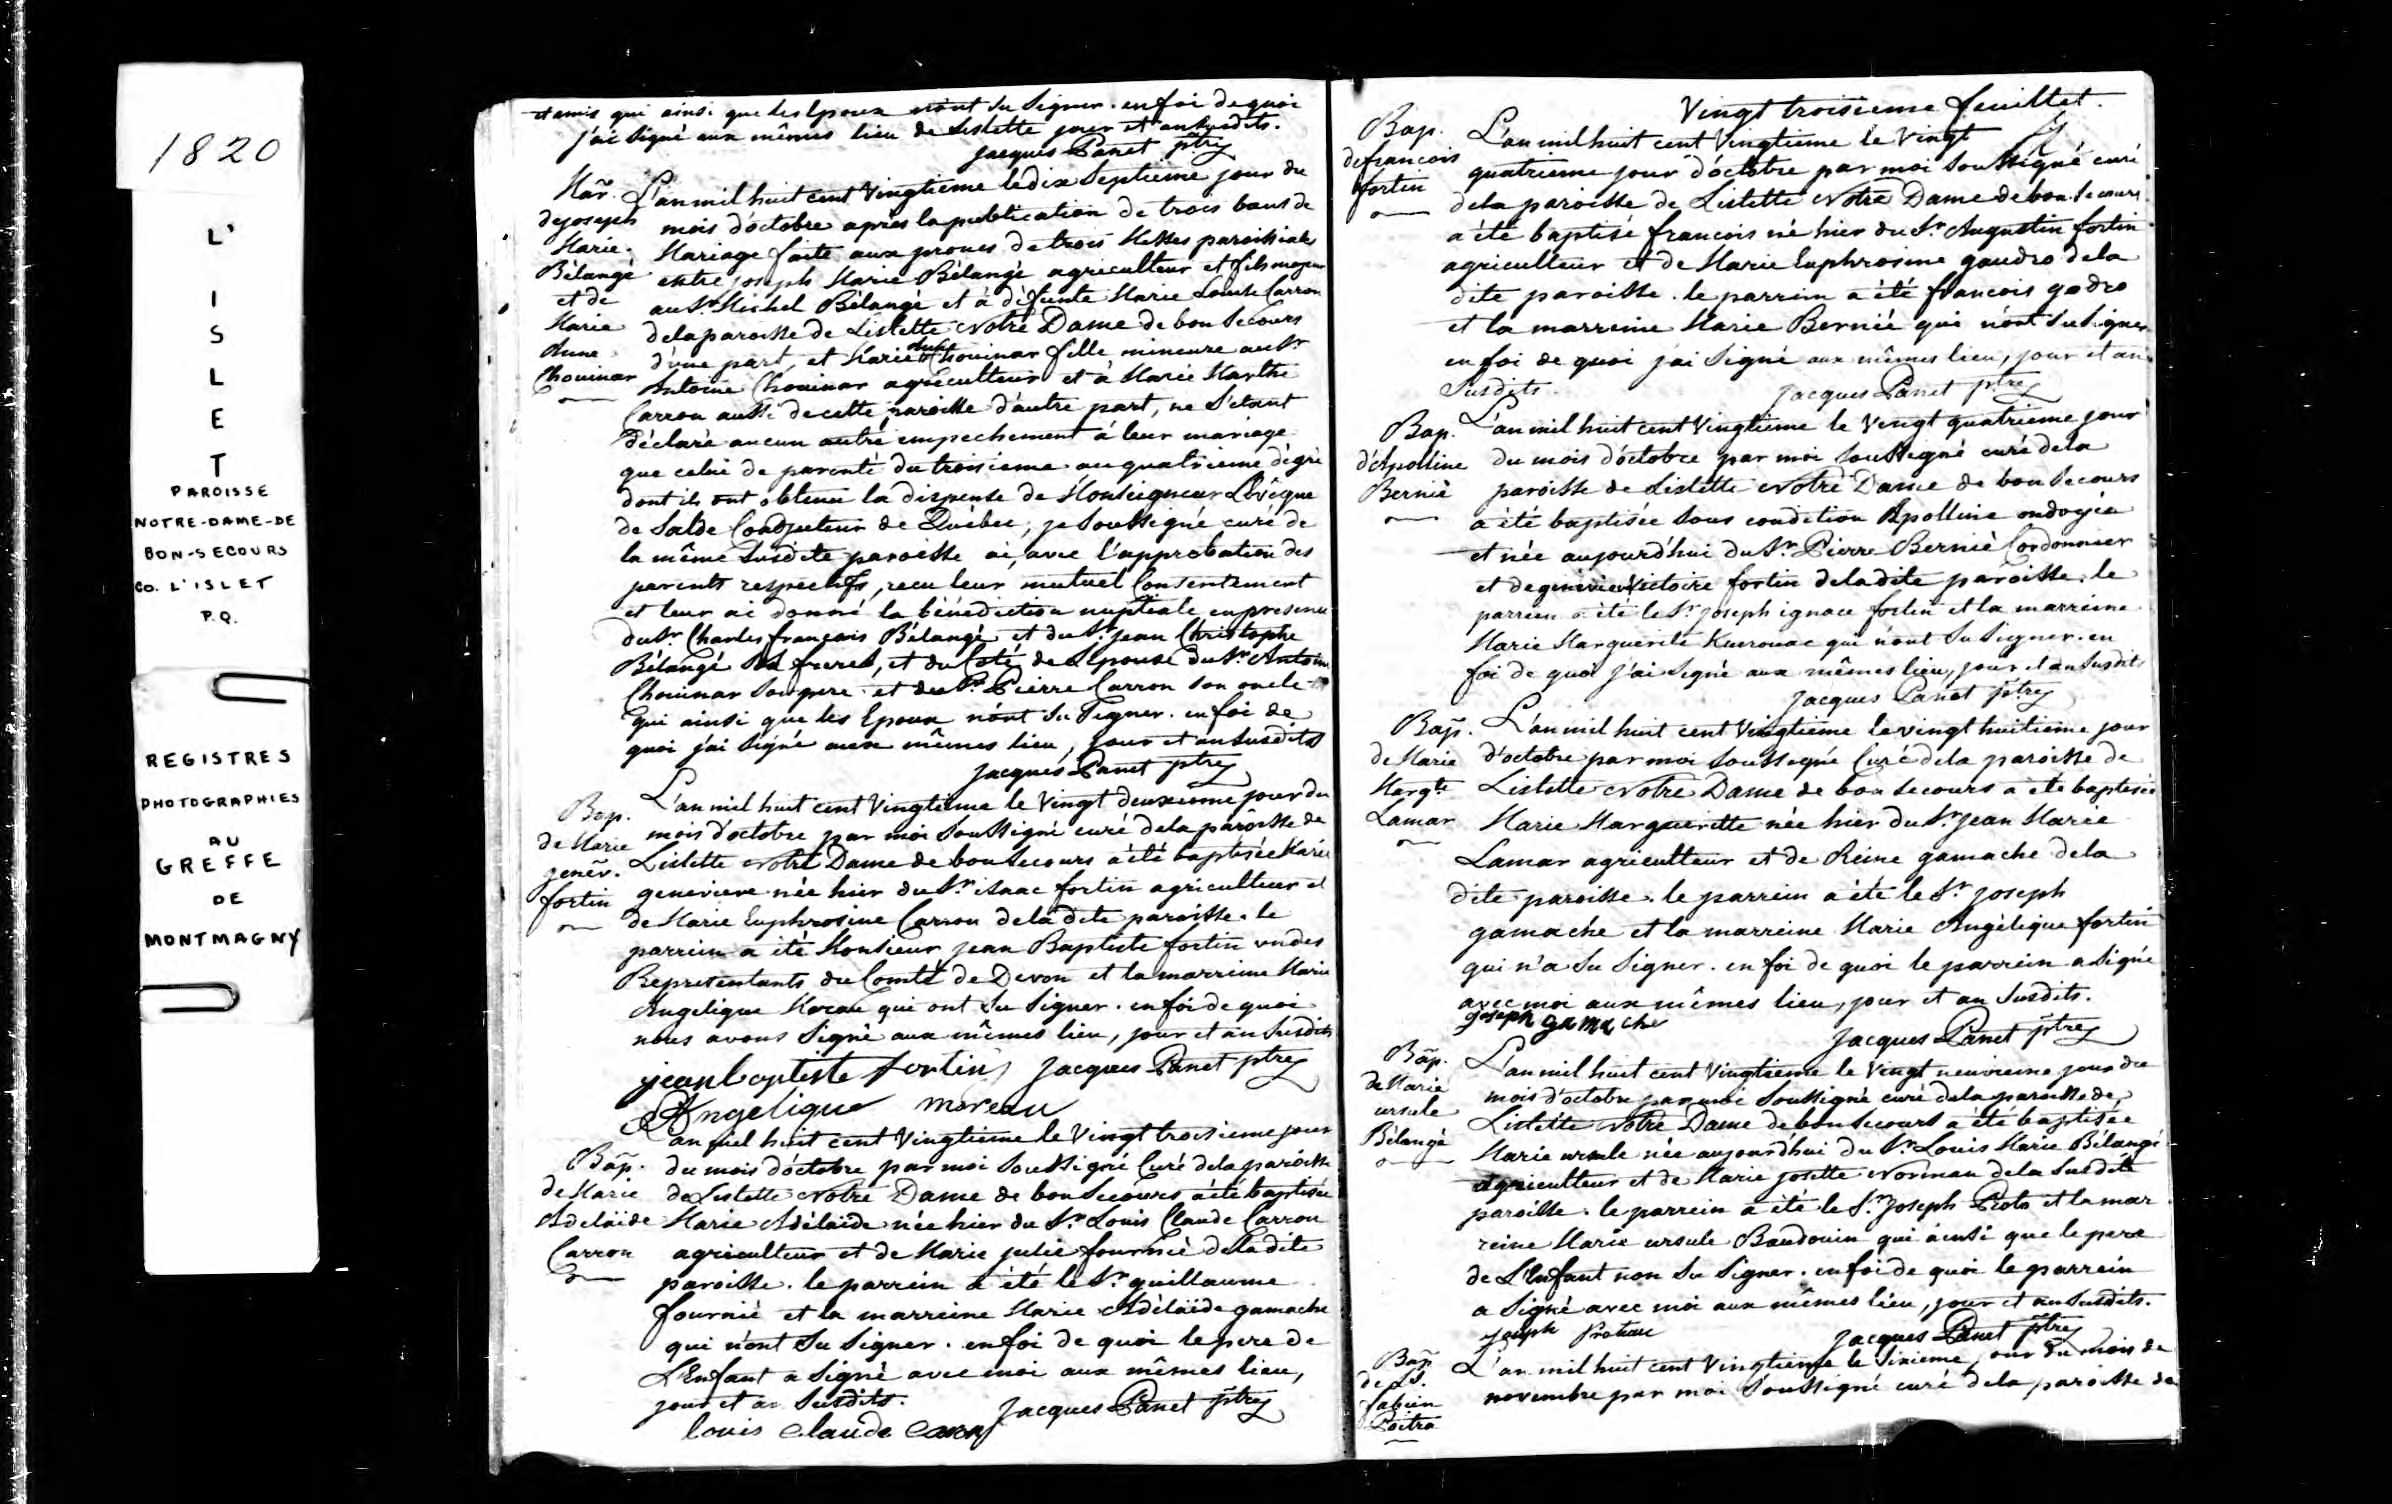 1820
L'
I
S
L
E
T
PAROISSE
NOTRE-DAME-DE
BON-SECOURS
CO. L'ISLET
P.Q.
REGISTRES
PHOTOGRAPHIES
AU
GREFFE
DE
MONTMAGNY
et amis qui ainsi que les Epoux n'ont su signer. en foi de quoi
j'ai signé aux mêmes lieu de Lislette jour et an susdits.
Jacques Panet ptre
Mar. L'an mil huit cent Vingtieme le dix Septieme jour du
de joseph mois d'octobre après la publication de trois bans de
Marie Mariage faite aux prones de trois Messes paroissiales
Bélangé entre joseph Marie Bélangé agriculteur et fils majeur
et de au Sr. Michel Bélangé et à défunte Marie Louise Carron
Marie de la paroisse de Lislette Notre Dame de bon Secours
Anne d'une part, et Marie Anne Chouinar fille mineure au Sr
Chouinar Antoine Chouinar agriculteur et à Marie Marthe
Carron aussi de cette paroisse d'autre part, ne s'étant
déclaré aucun autre empechement à leur mariage
que celui de parenté du troisieme au quatrieme dégré
dont ils ont obtenu la dispense de Monseigneur L'évêque
de Salde Coadjuteur de Québec, je Soussigné curé de
la même susdite paroisse ai, avec l'approbation des
parents respectifs, recu leur mutuel Consentement
et leur ai donné la bénédiction nuptiale en presence
du Sr. Charles françois Bélangé et du Sr. jean Christophe
Bélangé ses freres, et du Coté de L'Epouse du Sr. Antoine
Chouinar son pere et du Sr. Pierre Carron son oncle
qui ainsi que les Epoux n'ont su signer. en foi de
quoi j'ai signé aux mêmes lieu, jour et an susdits
Jacques Panet ptre
L'an mil huit cent Vingtieme le Vingt deuxieme jour du
Bap. mois d'octobre par moi Soussigné curé de la paroisse de
de Marie Lislette Notre Dame de bon Secours a été baptisée Marie
genev. genevieve née hier du Sr. isaac fortin agriculteur et
fortin de Marie Euphrosine Carron de la dite paroisse. le
parrein a été Monsieur jean Baptiste fortin un des
Representants du Comté de Devon et la marreine Marie
Angelique Moreau qui ont su signer. en foi de quoi
nous avons signé aux mêmes lieu, jour et an susdits
jean baptiste fortin Jacques Panet ptre
Angelique moreau
L'an mil huit cent Vingtieme le Vingt troisieme jour
Bap. du mois d'octobre par moi Soussigné Curé de la paroisse
de Marie de Lislette Notre Dame de bon Secours a été baptisée
Adelaïde Marie Adélaïde née hier du Sr. Louis Claude Carron
Carron agriculteur et de Marie julie fournié de la dite
paroisse. le parrein a été le Sr. guillaume
fournié et la marreine Marie Adélaïde gamache
qui n'ont su signer. en foi de quoi le pere de
L'Enfant a signé avec moi aux mêmes lieu,
jour et an susdits. Jacques Panet ptre
louis claude caron
Vingt troisieme feuillet.
Bap. L'an mil huit cent Vingtieme le Vingt
de francois quatrieme jour d'octobre par moi Soussigné curé
fortin de la paroisse de Lislette Notre Dame de bon Secours
a été baptisé francois né hier du Sr. Augustin fortin
agriculteur et de Marie Euphrosine gaudro de la
dite paroisse. le parrein a été francois godro
et la marreine Marie Bernié qui n'ont su signer
en foi de quoi j'ai signé aux mêmes lieu, jour et an
susdits. Jacques Panet ptre
Bap. L'an mil huit cent Vingtieme le Vingt quatrieme jour
d'Apolline du mois d'octobre par moi Soussigné curé de la
Bernié paroisse de Lislette Notre Dame de bon Secours
a été baptisée sous condition Apolline ondoyée
et née aujourd'hui du Sr. Pierre Bernié Cordonnier
et de genevieve Victoire fortin de la dite paroisse. le
parrein a été le Sr. joseph ignace fortin et la marreine
Marie Marguerite Kuerouac qui n'ont su signer. en
foi de quoi j'ai signé aux mêmes lieu, jour et an susdits
Jacques Panet ptre
Bap. L'an mil huit cent Vingtieme le vingt huitieme jour
de Marie d'octobre par moi Soussigné Curé de la paroisse de
Margte Lislette Notre Dame de bon Secours a été baptisée
Lamar Marie Marguerite née hier du Sr. jean Marie
Lamar agriculteur et de Reine gamache de la
dite paroisse. le parrein a été le Sr. joseph
gamache et la marreine Marie Angelique fortin
qui n'a su signer. en foi de quoi le parrein a signé
avec moi aux mêmes lieu, jour et an susdits.
joseph gamache Jacques Panet ptre
Bap. L'an mil huit cent Vingtieme le Vingt neuvieme jour du
de Marie mois d'octobre par moi Soussigné curé de la paroisse de
ursule Lislette Notre Dame de bon Secours a été baptisée
Bélangé Marie ursule née aujourd'hui du Sr. Louis Marie Bélangé
agriculteur et de Marie josette Norman de la susdite
paroisse. le parrein a été le Sr. joseph Proto et la mar
reine Marie ursule Baudouin qui ainsi que le pere
de L'Enfant non su signer. en foi de quoi le parrein
a signé avec moi aux mêmes lieu, jour et an susdits.
joseph Jacques Panet ptre
Bap. L'an mil huit cent Vingtieme le Sixieme jour du mois de
de Ls. novembre par moi Soussigné curé de la paroisse de
fabien
Poitra